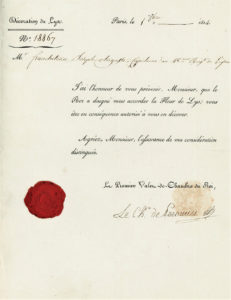 Décoration du Lys.
Paris, le 1814.
No. 18867
Mr.
J'ai l'honneur de vous prévenir, Monsieur, que le
Roi a daigné vous accorder la Fleur de Lys; vous
êtes en conséquence autorisé à vous en décorer.
Agréez, Monsieur, l'assurance de ma considération
distinguée.
Le Premier Valet-de-Chambre du Roi,
Le Ch. de